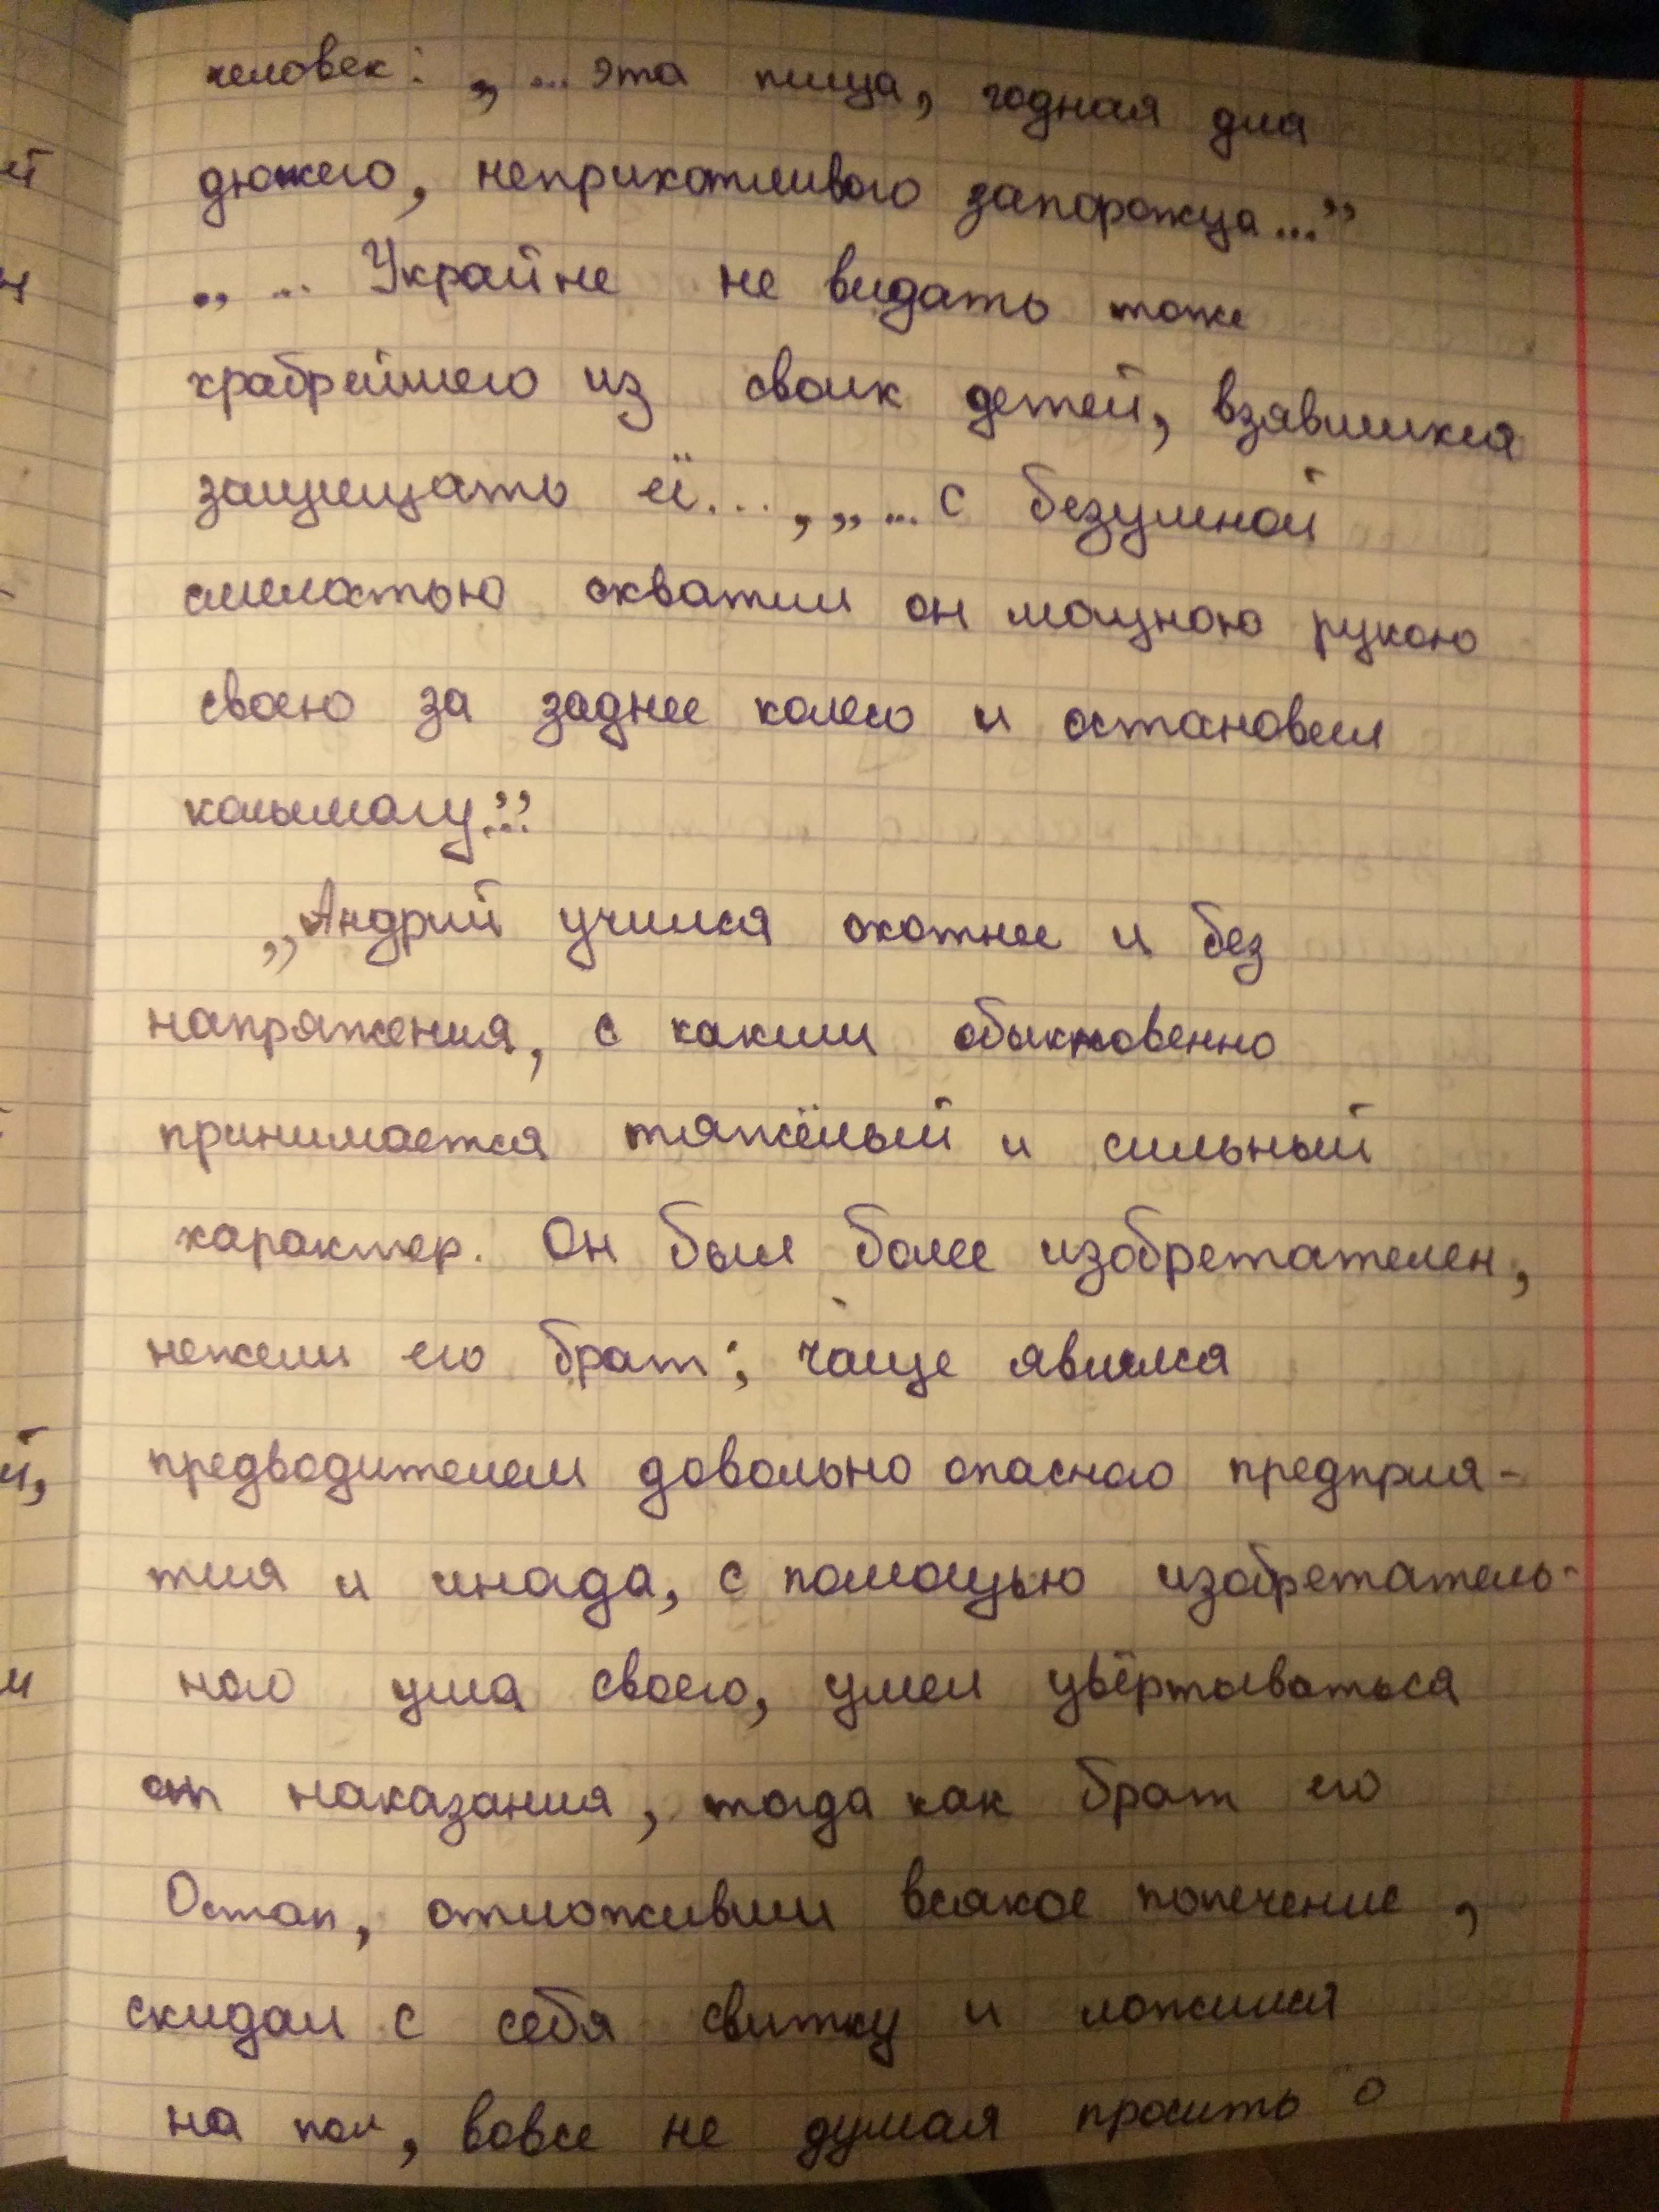 человек: „ ... эта пища, годная для
дюжего, неприхотливого запорожца..."
„ ... Украйне не видать тоже
храбрейшего из своих детей, взявшихся
защищать её..., „ ... с безумной
смелостью схватил он мощною рукою
своею за заднее колесо и остановил
колымагу..."
„Андрий учился охотнее и без
напряжения, с каким обыкновенно
принимается тяжёлый и сильный
характер. Он был более изобретателен,
нежели его брат; чаще явился
предводителем довольно опасного предприя-
тия и иногда, с помощью изобретатель-
ного ума своего, умел увёртываться
от наказания, тогда как брат его
Остап, отложивши всякое попечение,
скидал с себя свитку и ложился
на пол, вовсе не думая просить о
й
и
й,
и